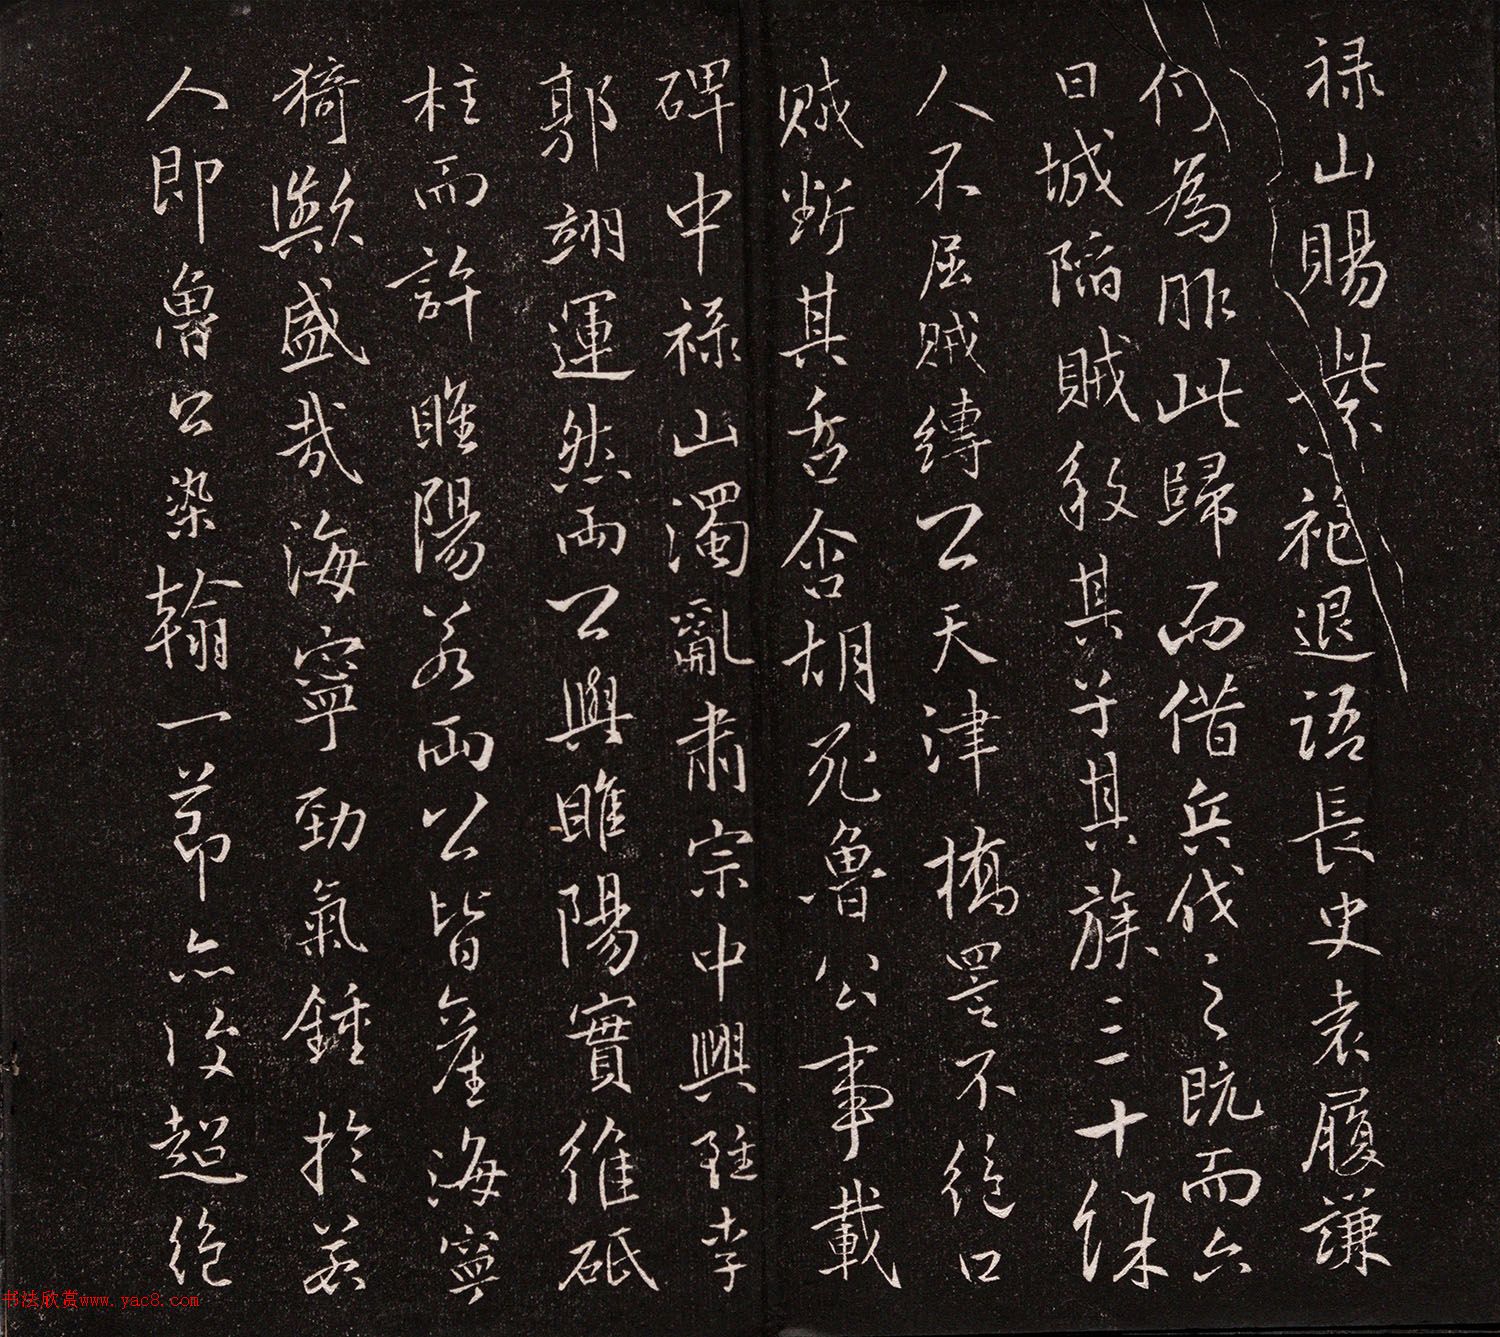 祿山賜紫袍退語長史袁履謙
何為服此歸而借兵伐之既而六
日城陷賊殺其子其族三十餘
人不屈賊縛公天津橋詈不絕口
賊斷其舌含胡死魯公事載
碑中祿山濁亂肅宗中興雖李
郭翊運然兩公與睢陽實維砥
柱而許睢陽若兩公皆產海寧
猗歟盛哉海寧勁氣鍾於若
人即魯公染翰一節亦復超絕
书法欣赏www.yac8.com